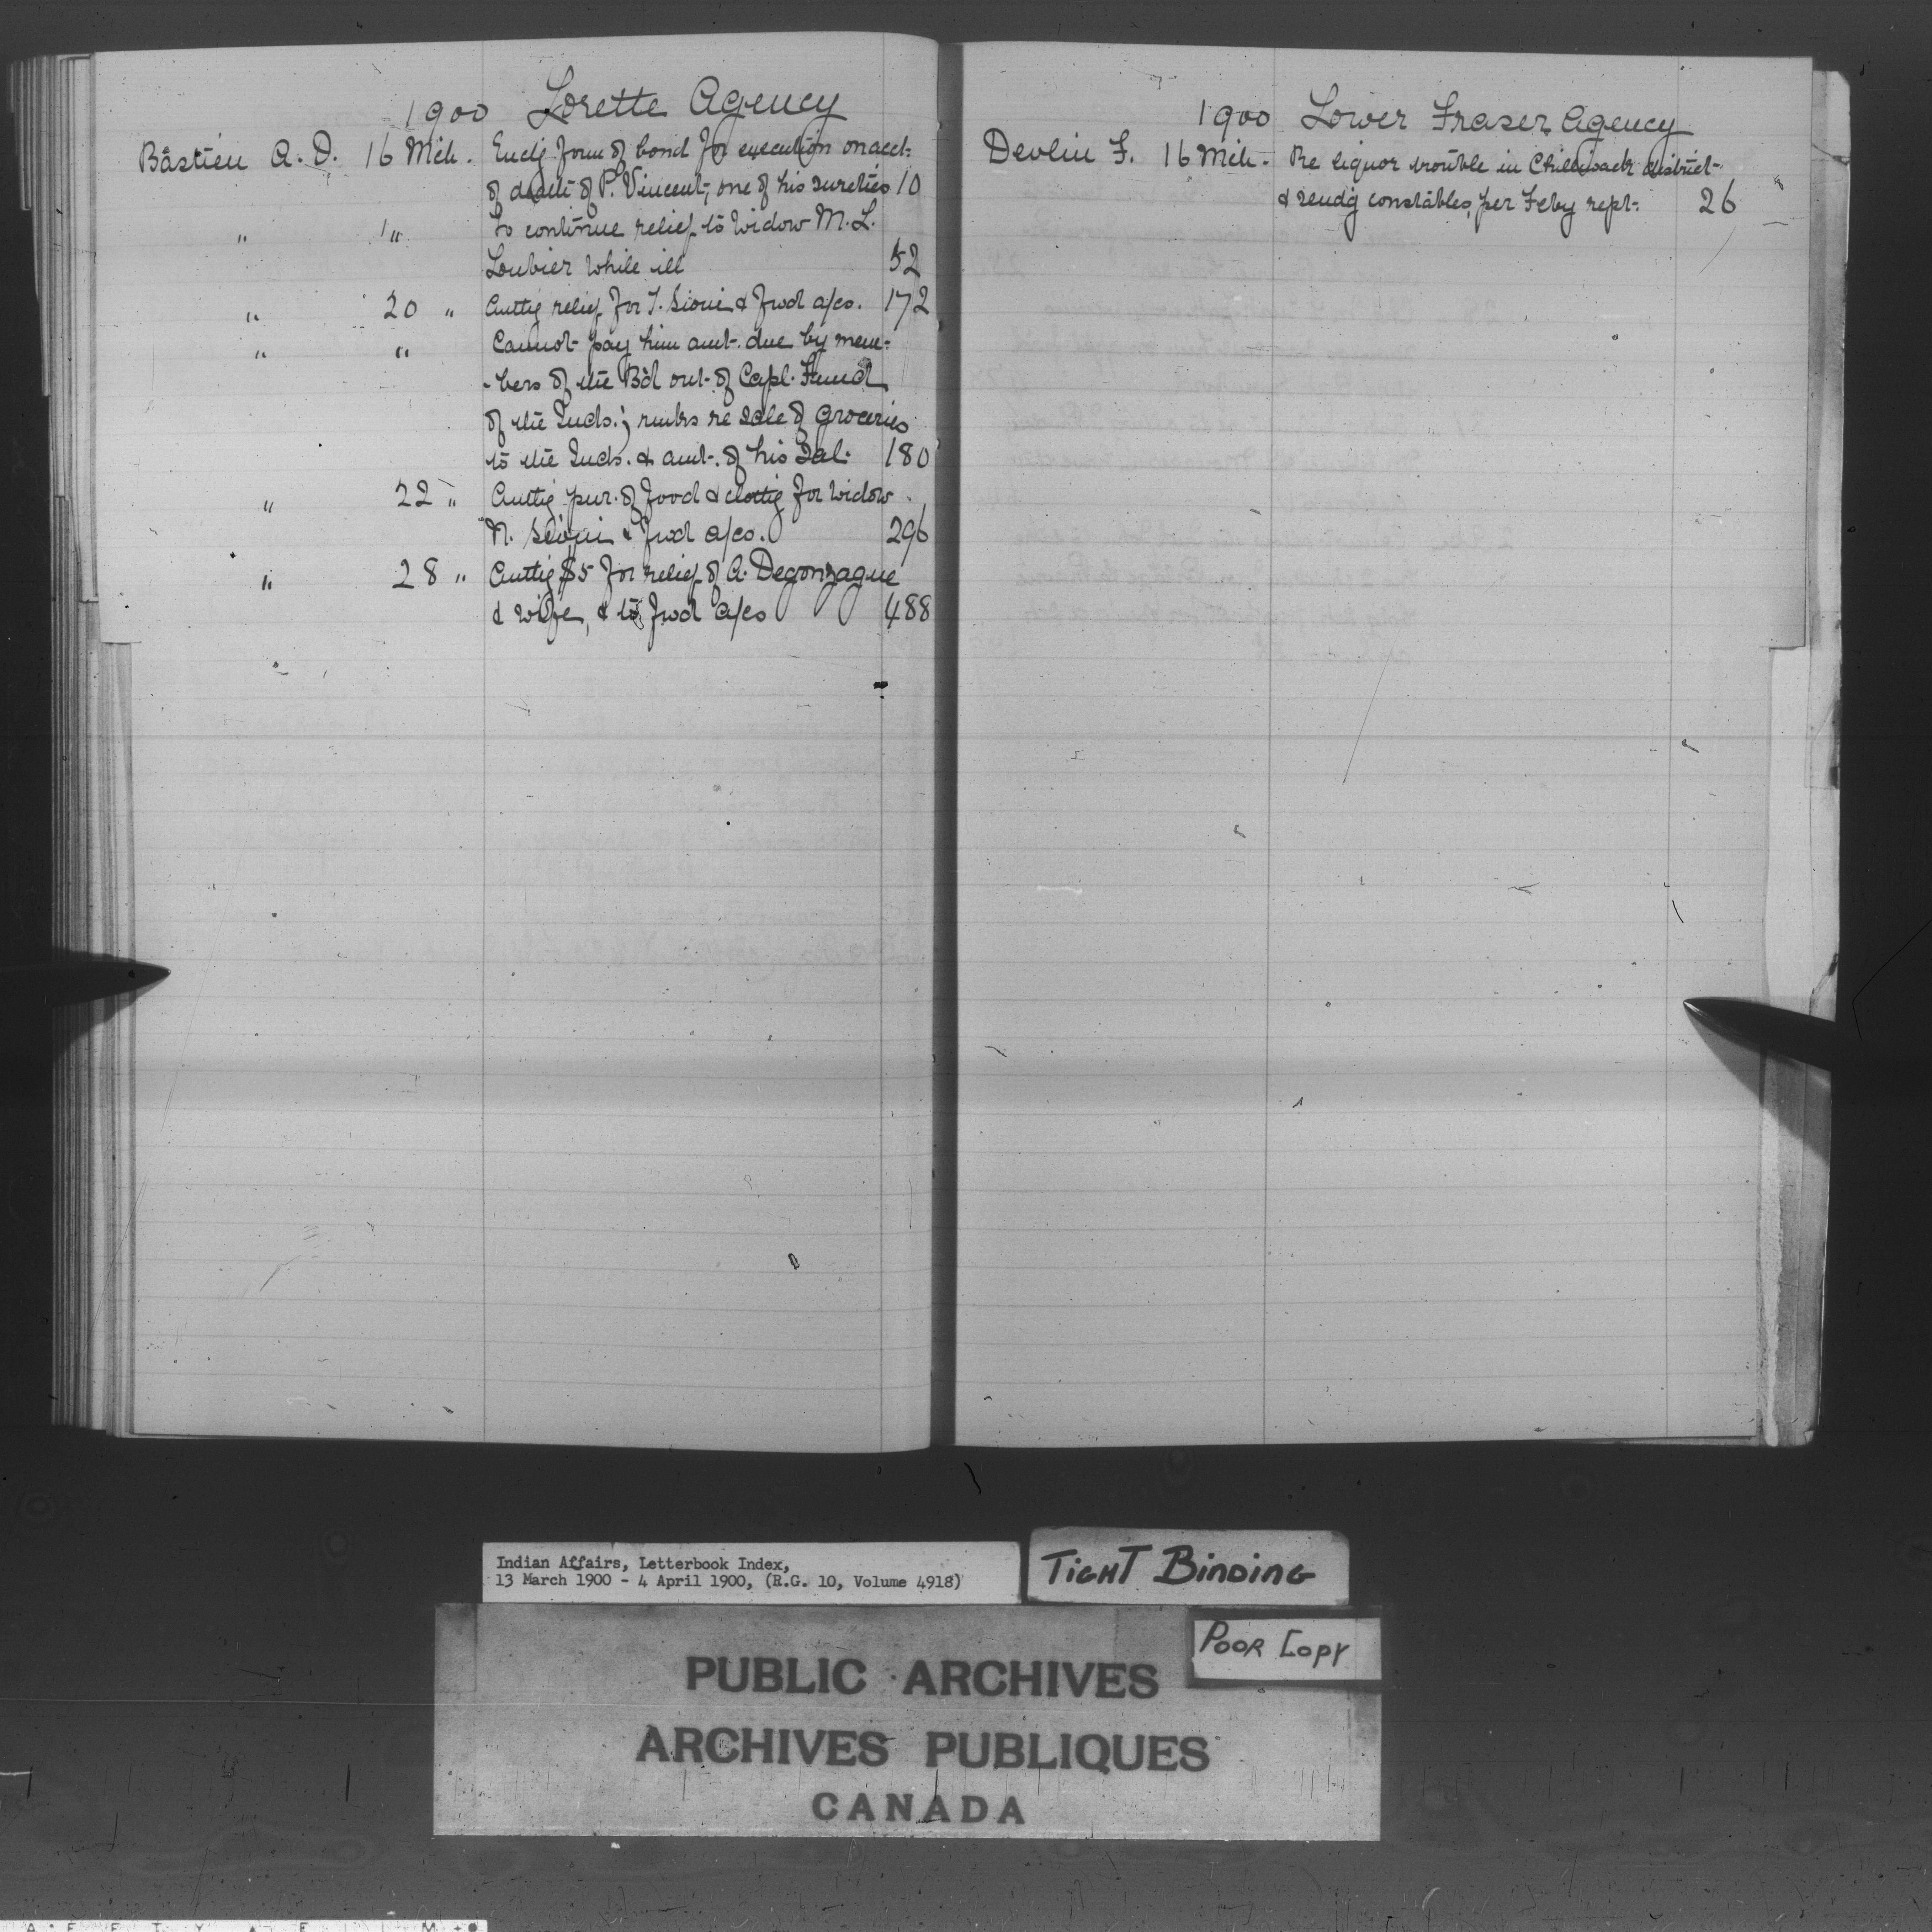 1900 Lorette Agency
Bastien A. D. 16 Mch. Encdg form of bond for execution on acct.
of death of P. Vincent, one of his sureties 10
" " To continue relief to Widow M. L.
Loubier while ill 52
" 20 " Authg relief for T. Sioui & fwd a/cs. 172
" " Cannot pay him amt. due by mem-
-bers of the Bd out of Capl. Fund
of the Inds.; rmks re sale of groceries
to the Inds. & amt. of his Sal. 180
" 22 " Authg pur. of food & clothg for Widow
N. Sioui & fwd a/cs. 296
" 28 " Authg $5 for relief of A. Degonzague
& wife, & to fwd a/cs 488
1900 Lower Fraser Agency
Devlin F. 16 Mch. Re liquor trouble in Chilliwack district
& sendg constables, per Feby rept. 26
Indian Affairs, Letterbook Index,
13 March 1900 - 4 April 1900, (R.G. 10, Volume 4918)
TIGHT BINDING
POOR COPY
PUBLIC ARCHIVES
ARCHIVES PUBLIQUES
CANADA